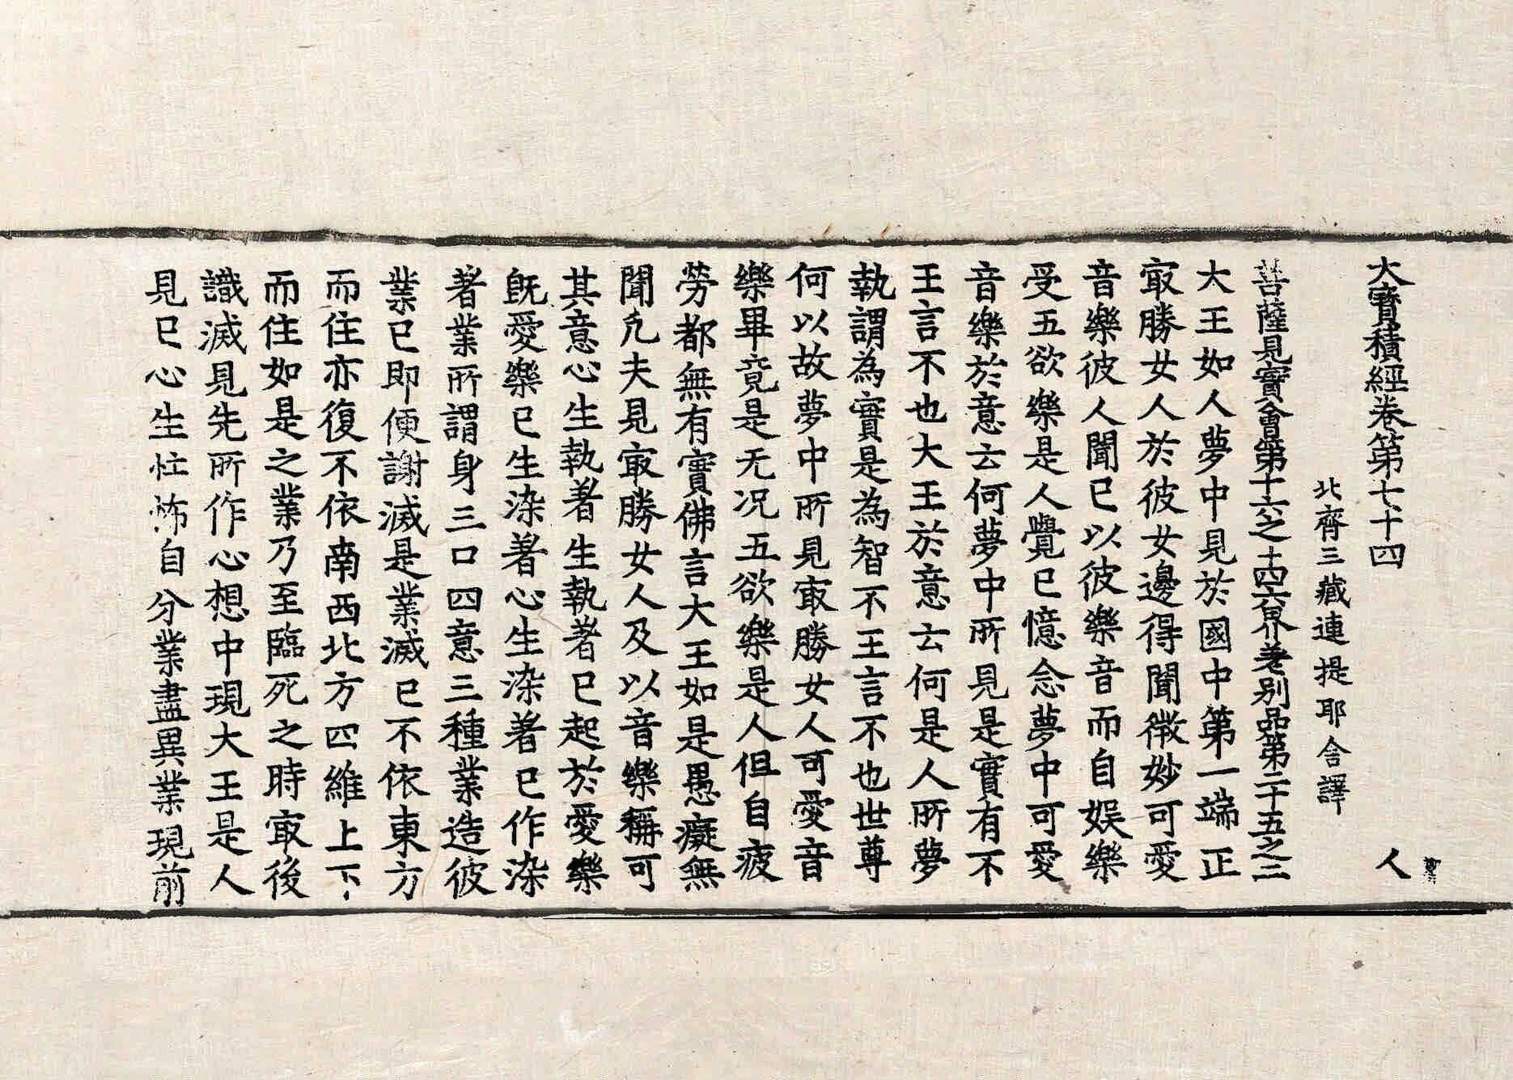 大寶積經卷第七十四 人
北齊三藏連提耶舍譯
菩薩見實會第十六之十四六界差別品第二十五之三
大王如人夢中見於國中第一端正
㝡勝女人於彼女邊得聞微妙可愛
音樂彼人聞已以彼樂音而自娛樂
受五欲樂是人覺已憶念夢中可愛
音樂於意云何夢中所見是實有不
王言不也大王於意云何是人所夢
執謂為實是為智不王言不也世尊
何以故夢中所見㝡勝女人可愛音
樂畢竟是无况五欲樂是人但自疲
勞都無有實佛言大王如是愚癡無
聞凡夫見㝡勝女人及以音樂稱可
其意心生執著生執著已起於愛樂
既愛樂已生染著心生染著已作染
著業所謂身三口四意三種業造彼
業已即便謝滅是業滅已不依東方
而住亦復不依南西北方四維上下
而住如是之業乃至臨死之時㝡後
識滅見先所作心想中現大王是人
見已心生忙怖自分業盡異業現前